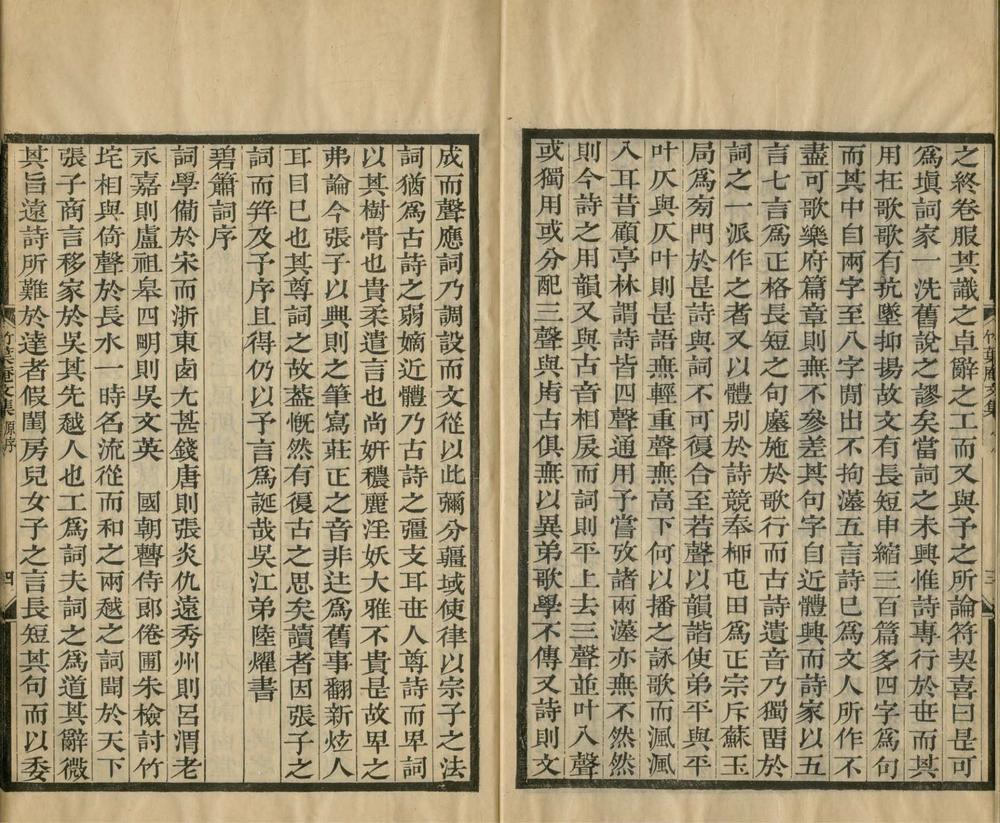 之終卷服其識之卓辭之工而又與予之所論符契喜曰是可
爲塡詞家一洗舊說之謬矣當詞之未興惟詩專行於丗而其
用在歌歌有抗墜抑揚故文有長短申縮三百篇多四字爲句
而其中自兩字至八字閒出不拘漢五言詩已爲文人所作不
盡可歌樂府篇章則無不參差其句字自近體興而詩家以五
言七言爲正格長短之句廑施於歌行而古詩遺音乃獨畱於
詞之一派作之者又以體別於詩競奉栁屯田爲正宗斥蘇玉
局爲㫄門於是詩與詞不可復合至若聲以韻諧使弟平與平
叶仄與仄叶則是語無輕重聲無高下何以播之詠歌而渢渢
入耳昔顧亭林謂詩皆四聲通用予嘗攷諸兩漢亦無不然然
則今詩之用韻又與古音相戾而詞則平上去三聲並叶入聲
或獨用或分配三聲與歬古俱無以異弟歌學不傳又詩則文
成而聲應詞乃調設而文從以此彌分疆域使律以宗子之法
詞猶爲古詩之弱嫡近體乃古詩之彊支耳丗人尊詩而卑詞
以其樹骨也貴柔遣言也尚妍穠麗淫妖大雅不貴是故卑之
弗論今張子以興則之筆寫莊正之音非辻爲舊事翻新炫人
耳目已也其尊詞之故葢慨然有復古之思矣讀者因張子之
詞而笄及予序且得仍以予言爲誕哉吳江弟陸燿書
碧簫詞序
詞學備於宋而浙東鹵尤甚錢唐則張炎仇遠秀州則呂渭老
永嘉則盧祖皋四朙則吳文英　國朝朁侍郞倦圃朱檢討竹
垞相與倚聲於長水一時名流從而和之兩越之詞聞於天下
張子商言移家於吳其先越人也工爲詞夫詞之爲道其辭微
其旨遠詩所難於達者假閨房兒女子之言長短其句而以委
竹葉庵文集
三
竹葉庵文集 原序
四